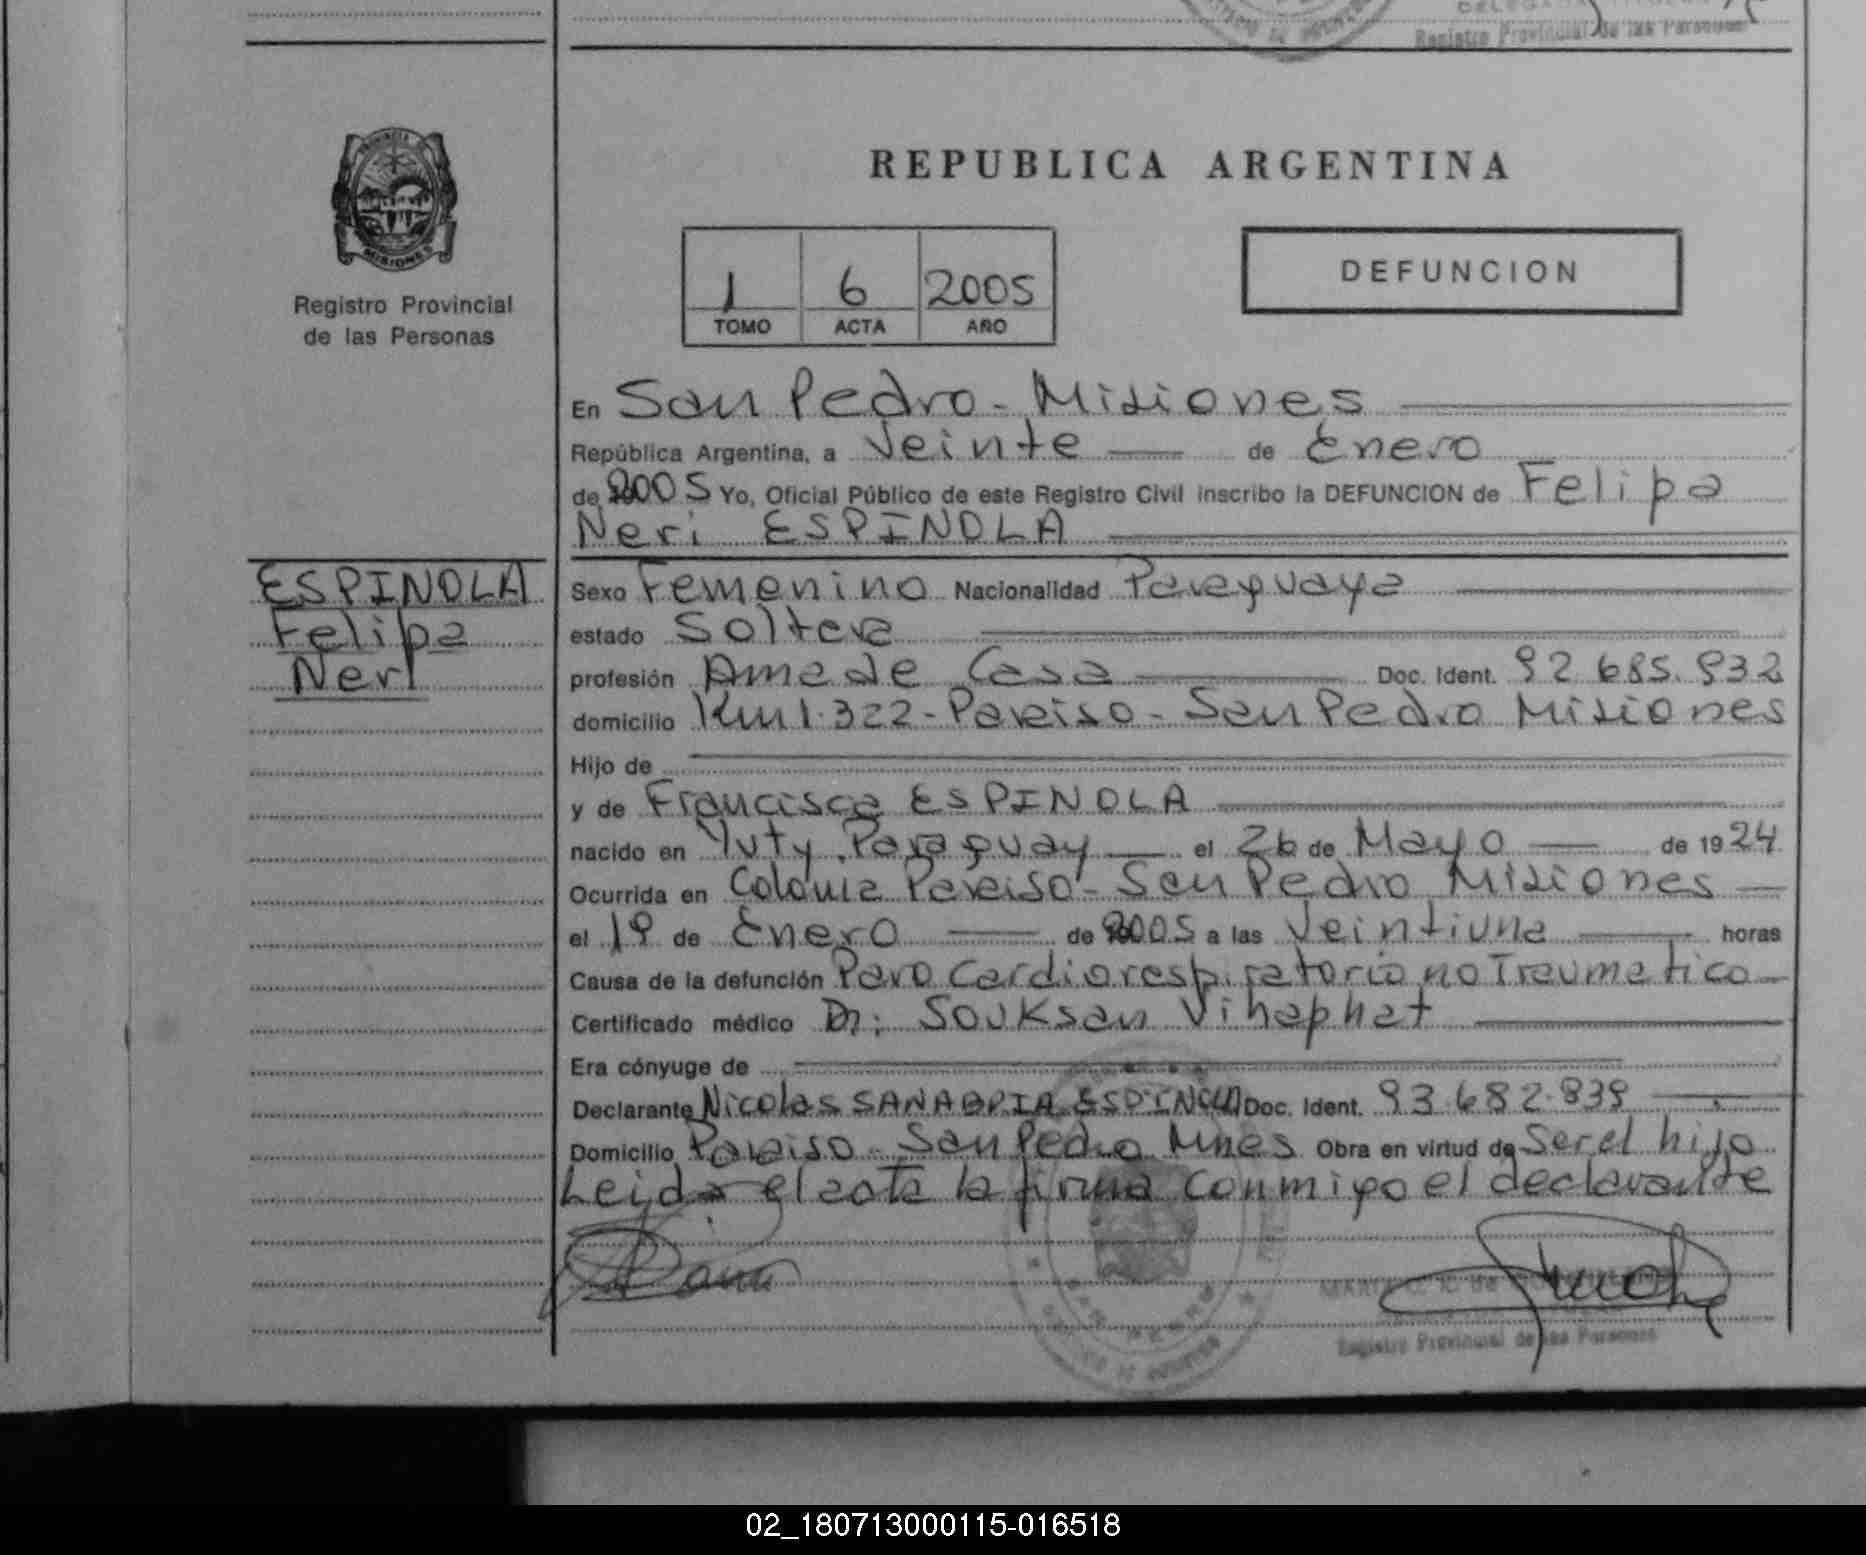 Registro Provincial de las Personas
PROVINCIA DE
MISIONES
Registro Provincial
de las Personas
REPUBLICA ARGENTINA
1 6 2005
TOMO ACTA AÑO
DEFUNCION
En San Pedro - Misiones
República Argentina, a Veinte de Enero
de 2005 Yo, Oficial Público de este Registro Civil inscribo la DEFUNCION de Felipa
Neri ESPINOLA
ESPINOLA
Felipa
Neri
Sexo Femenino Nacionalidad Paraguaya
estado Soltera
profesión Ama de Casa Doc. Ident. 92.685.932
domicilio Km 1.322 - Paraiso - San Pedro Misiones
Hijo de
y de Francisca ESPINOLA
nacido en Yuty, Paraguay el 26 de Mayo de 1924
Ocurrida en Colonia Paraiso - San Pedro Misiones
el 19 de Enero de 2005 a las Veintiuna horas
Causa de la defunción Paro Cardiorespiratorio no Traumatico
Certificado médico Dr: Souksan Vihaphat
Era cónyuge de
Declarante Nicolas SANABRIA ESPINOLA Doc. Ident. 93.682.839
Domicilio Paraiso - San Pedro Mnes Obra en virtud de Ser el hijo
Leida el acta la firma conmigo el declarante
Registro Provincial de las Personas
02_180713000115-016518